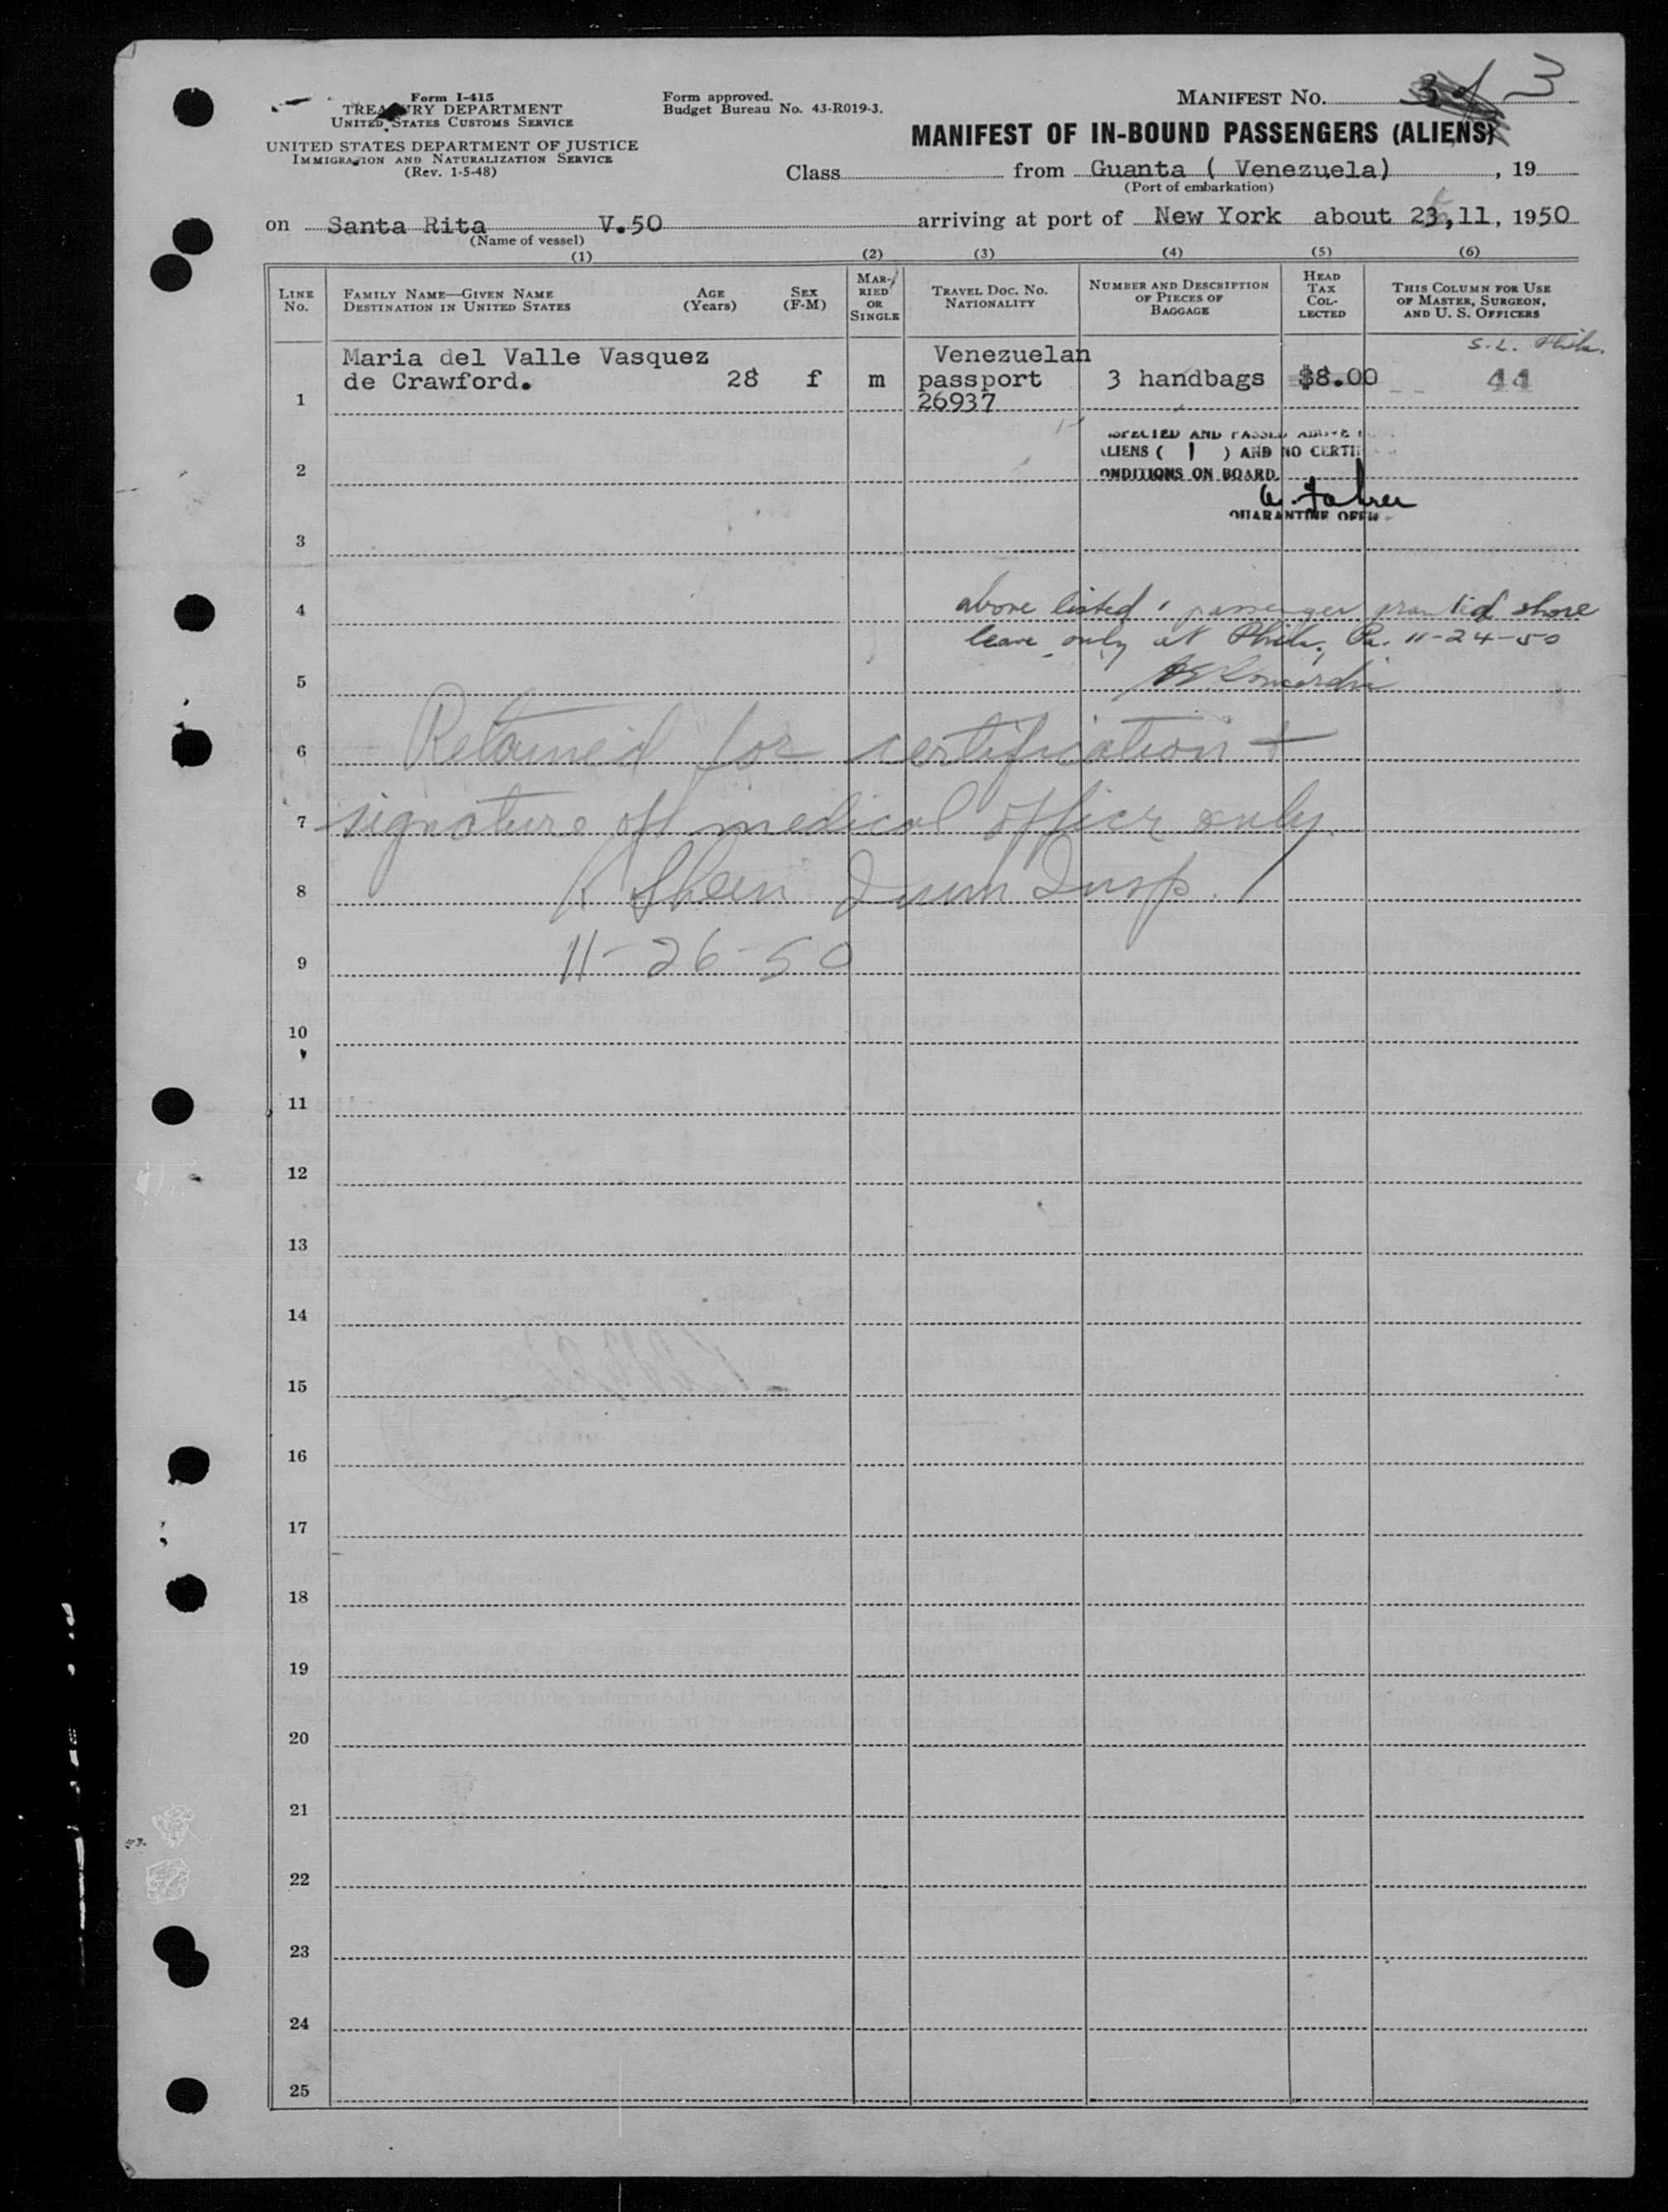 Form I-415
TREASURY DEPARTMENT
UNITED STATES CUSTOMS SERVICE
UNITED STATES DEPARTMENT OF JUSTICE
IMMIGRATION AND NATURALIZATION SERVICE
(Rev. 1-5-48)
Form approved.
Budget Bureau No. 43-R019-3.
MANIFEST NO. 3
MANIFEST OF IN-BOUND PASSENGERS (ALIENS)
Class from Guanta ( Venezuela) , 19
(Port of embarkation)
on Santa Rita V.50 arriving at port of New York about 23,11, 1950
(Name of vessel)
(1) (2) (3) (4) (5) (6)
LINE No. FAMILY NAME—GIVEN NAME DESTINATION IN UNITED STATES AGE (Years) SEX (F-M) MARRIED OR SINGLE TRAVEL DOC. NO. NATIONALITY NUMBER AND DESCRIPTION OF PIECES OF BAGGAGE HEAD TAX COLLECTED THIS COLUMN FOR USE OF MASTER, SURGEON, AND U. S. OFFICERS
S.L. Phila.
Maria del Valle Vasquez Venezuelan
de Crawford. 28 f m passport 3 handbags $8.00 44
1 26937
SPECTED AND PASSED ABOVE
LIENS ( 1 ) AND NO CERTI
2 ONDITIONS ON BOARD.
QUARANTINE OFFI
3
4 above listed 1 passenger granted shore
leave only at Phila., Pa. 11-24-50
5
6 Retained for certification +
7 signature of medical officer only.
8 Sheen Imm Insp.
9 11-26-50
10
11
12
13
14
15
16
17
18
19
20
21
22
23
24
25